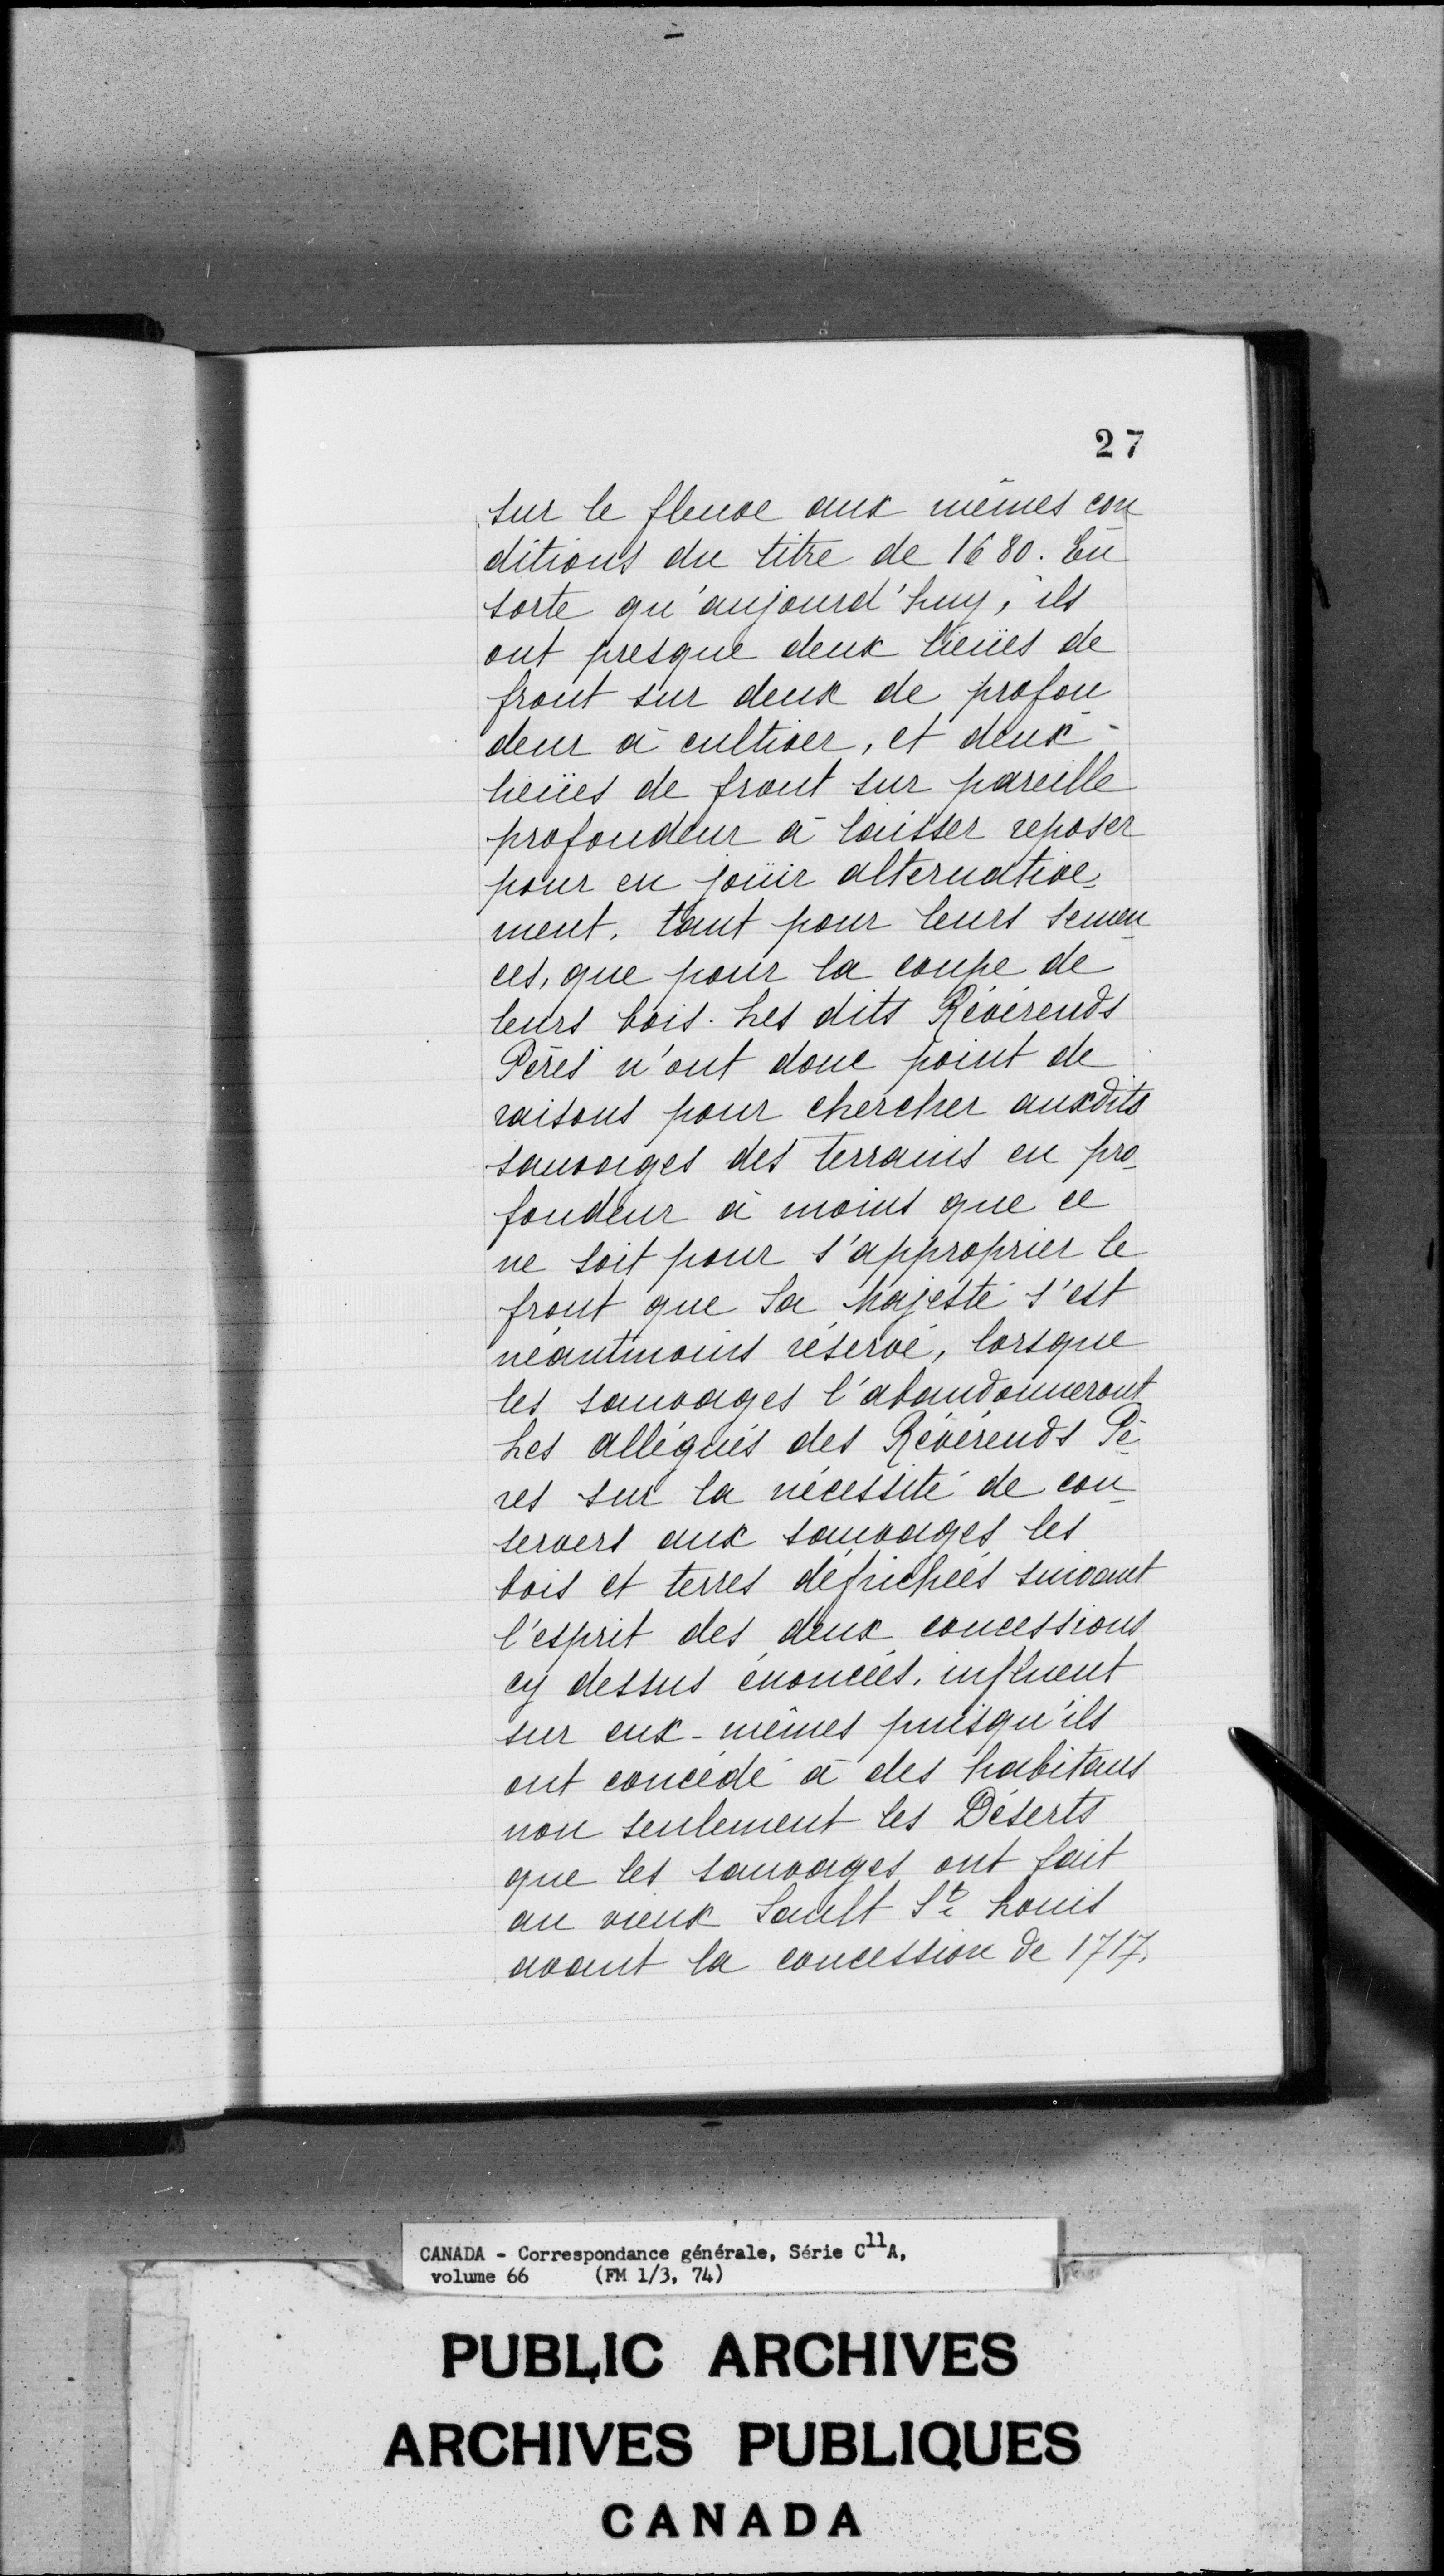 27
sur le fleuve aux mêmes con
ditions du titre de 1680. En
sorte qu'aujourd'huy, ils
ont presque deux lieües de
front sur deux de profon
deur à cultiver, et deux -
lieües de front sur pareille
profondeur à laisser reposer
pour en joüir alternative-
ment, tant pour leurs semen-
ces, que pour la coupe de
leurs bois. Les dits Révérends
Pères n'ont donc point de
raisons pour chercher auxdits
sauvaiges des terrains en pro-
fondeur à moins que ce
ne soit pour s'approprier le
front que Sa Majesté s'est
néantmoins réservé, lorsque
les sauvages l'abandonneront
Les allégués des Révérends Pè-
res sur la nécessité de con-
servers aux sauvages les
bois et terres défrichées suivant
l'esprit des deux concessions
cy dessus énoncées, influent
sur eux-mêmes puisqu'ils
ont concédé à des habitans
non seulement les Déserts
que les sauvages ont fait
au vieux Sault St Louis
avant la concession de 1717.
CANADA - Correspondance générale, Série C11A,
volume 66 (FM 1/3, 74)
PUBLIC ARCHIVES
ARCHIVES PUBLIQUES
CANADA